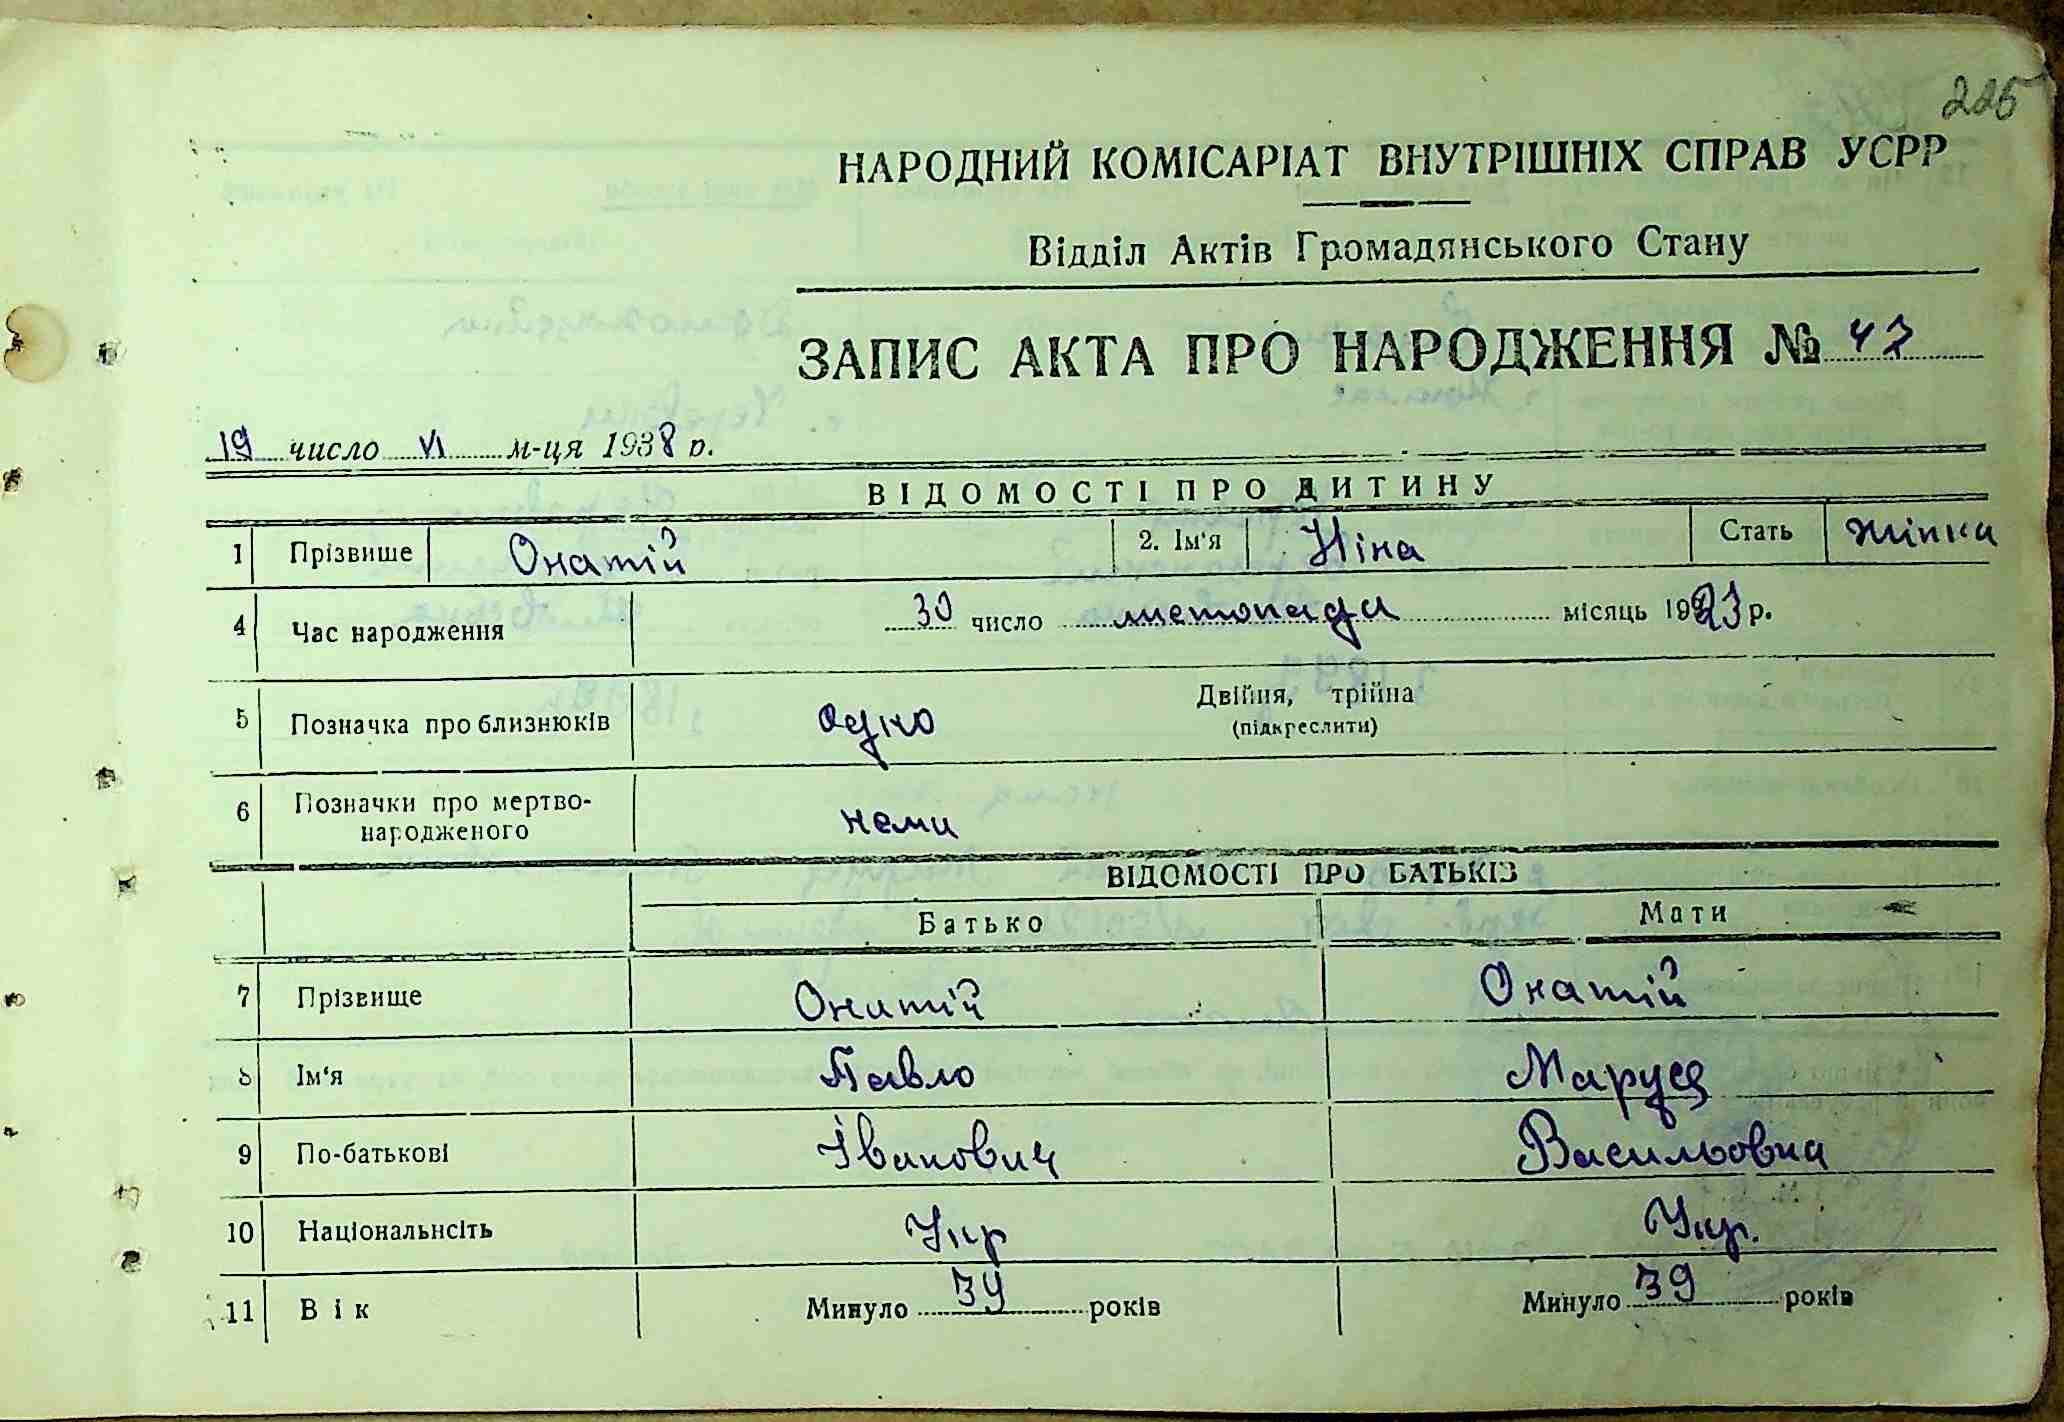 225
НАРОДНИЙ КОМІСАРІАТ ВНУТРІШНІХ СПРАВ УСРР
Відділ Актів Громадянського Стану
ЗАПИС АКТА ПРО НАРОДЖЕННЯ № 42
19 число VI м-ця 1938 р.
ВІДОМОСТІ ПРО ДИТИНУ
1 Прізвише Онатій 2. Ім'я Ніна Стать жінка
4 Час народження 30 число листопада місяць 1923 р.
5 Позначка про близнюків одно Двійня, трійна
(підкреслити)
6 Позначки про мертво-
народженого нема
ВІДОМОСТІ ПРО БАТЬКІВ
Батько Мати
7 Прізвище Онатій Онатій
8 Ім'я Павло Маруся
9 По-батькові Іванович Васильовна
10 Національнсіть Укр Укр.
11 Вік Минуло 39 років Минуло 39 років